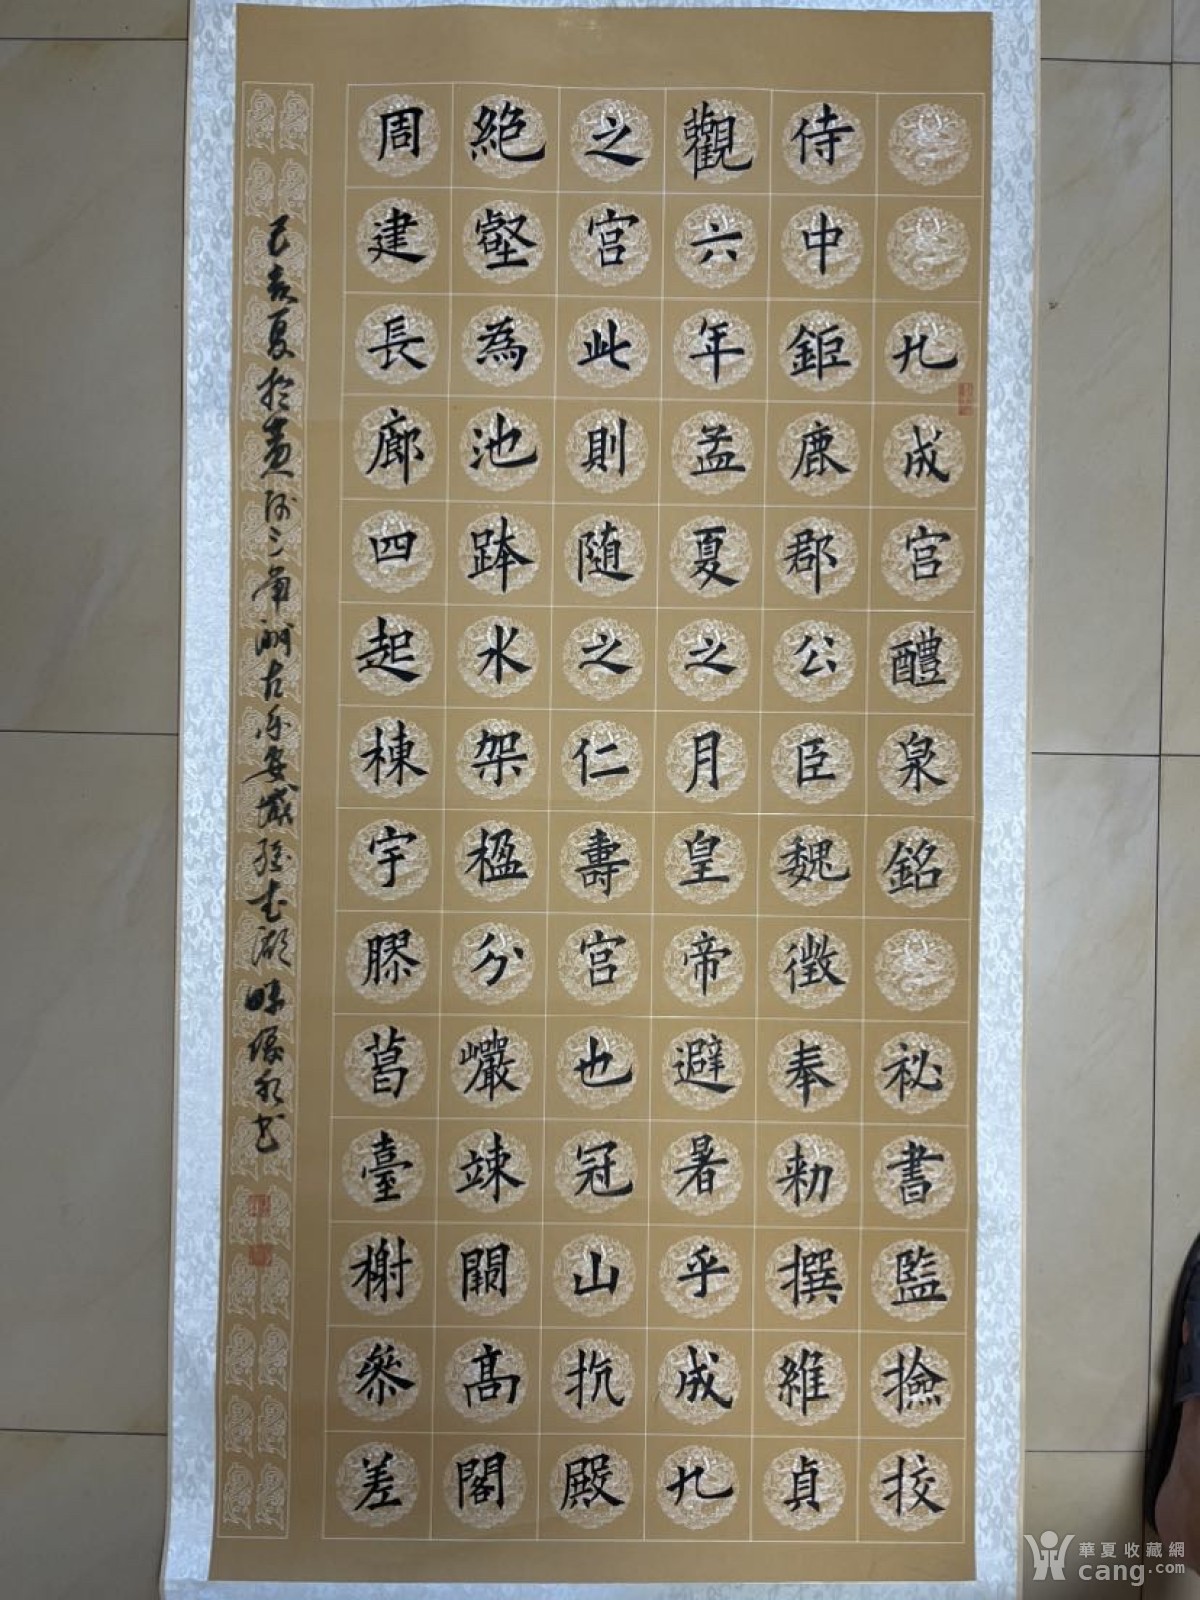 九成宫醴泉銘 祕書監撿挍
侍中鉅鹿郡公臣魏徵奉勑撰維貞
觀六年孟夏之月皇帝避暑乎成九
之宫此則随之仁壽宫也冠山抗殿
絶壑為池跨水架楹分巖竦闕髙閣
周建長廊四起棟宇膠葛臺榭叅差
己亥夏於黄河三角洲古乐安城孫武湖畔书
華夏收藏網
cang.com